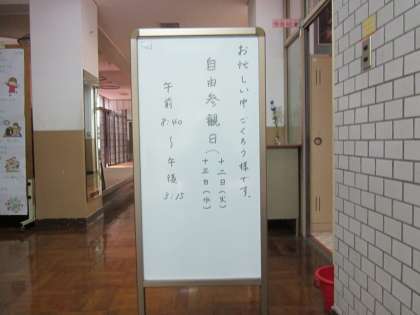 お忙しい中 ごくろう様です。
自由参観日(十二日(火)
十三日(水)
午前8:40〜午後3:15